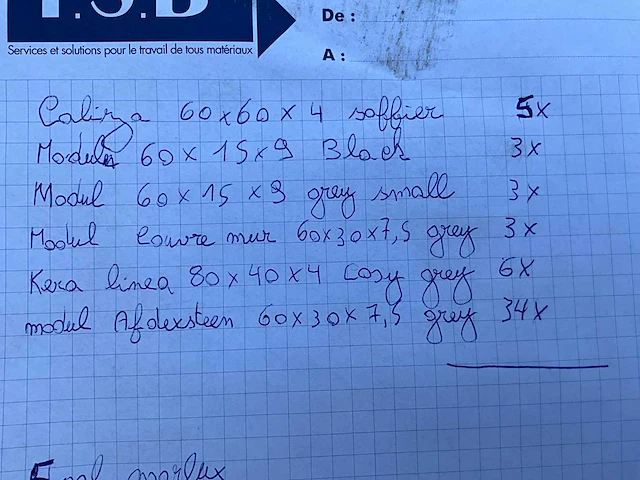 T.S.B
De :
Services et solutions pour le travail de tous matériaux
A :
Calinza 60x60x4 soffier 5x
Modul 60x15x9 Black 3x
Modul 60x15x9 grey small 3x
Modul couvre mur 60x30x7,5 grey 3x
Kera linea 80x40x4 Cosy grey 6x
modul Afdexsteen 60x30x7,5 grey 34x
marlux